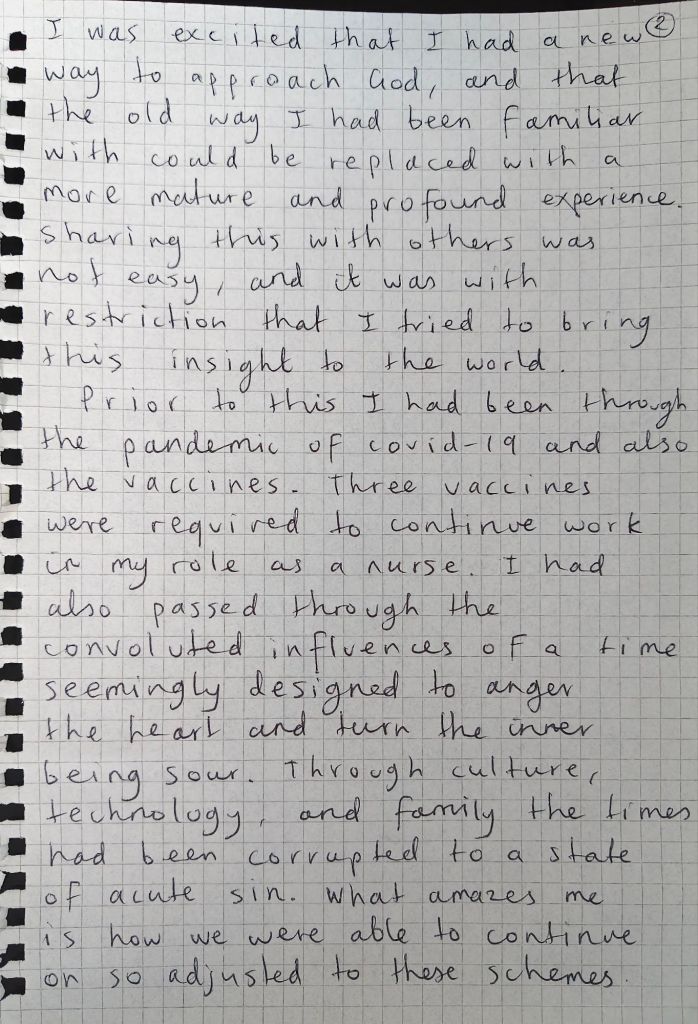 I was excited that I had a new ②
way to approach God, and that
the old way I had been familiar
with could be replaced with a
more mature and profound experience.
Sharing this with others was
not easy, and it was with
restriction that I tried to bring
this insight to the world.
Prior to this I had been through
the pandemic of covid-19 and also
the vaccines. Three vaccines
were required to continue work
in my role as a nurse. I had
also passed through the
convoluted influences of a time
seemingly designed to anger
the heart and turn the inner
being sour. Through culture,
technology, and family the times
had been corrupted to a state
of acute sin. What amazes me
is how we were able to continue
on so adjusted to these schemes.